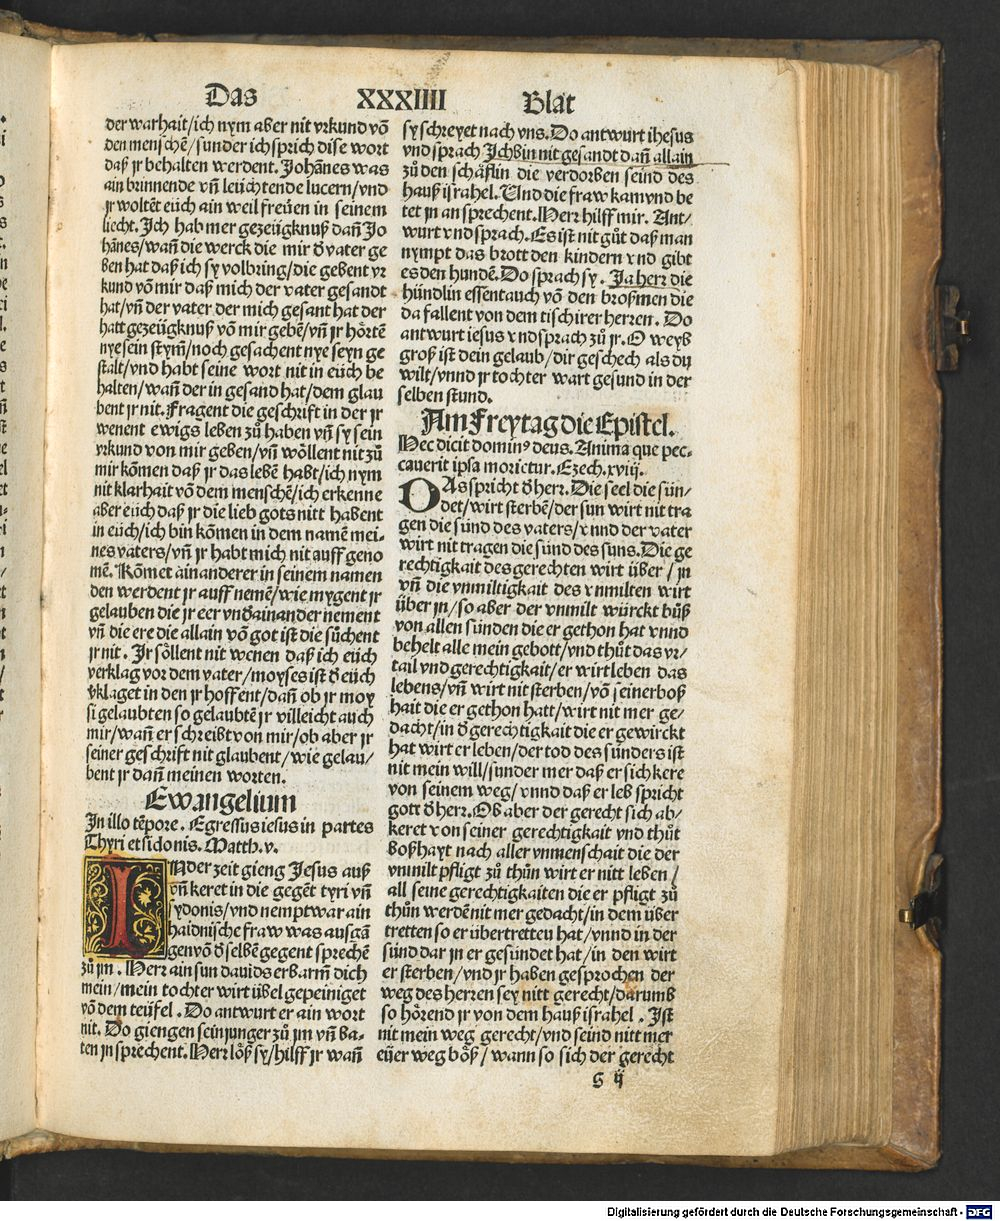 Das XXXIIII Blat
der warhait/ich nym aber nit vrkund võ
den menschẽ/sunder ich sprich dise wort
daß jr behalten werdent. Johãnes was
ain brinnende vñ leüchtende lucern/vnd
jr woltẽt eüch ain weil freüen in seinem
liecht. Ich hab mer gezeügknuß dañ Jo
hãnes/wañ die werck die mir d̕ vater ge
ben hat daß ich sy volbring/die gebent vr
kund võ mir daß mich der vater gesandt
hat/vñ der vater der mich gesant hat der
hatt gezeügknuß võ mir gebẽ/vñ jr hòrtẽ
nye sein stym̃/noch gesachent nye seyn ge
stalt/vnd habt seine wort nit in eüch be
halten/wañ der in gesand hat/dem glau
bent jr nit. Fragent die geschrift in der jr
wenent ewigs leben zů haben vñ sy sein
vrkund von mir geben/vñ wöllent nit zů
mir kõmen daß jr das lebẽ habt/ich nym
nit klarhait võ dem menschẽ/ich erkenne
aber eüch daß jr die lieb gots nitt habent
in eüch/ich bin kõmen in dem namẽ mei-
nes vaters/vñ jr habt mich nit auff geno
mẽ. Kõmet ain anderer in seinem namen
den werdent jr auff nemẽ/wie mygent jr
gelauben die jr eer vnd̕ainander nement
vñ die ere die allain võ got ist die sůchent
jr nit. Jr söllent nit wenen daß ich eüch
verklag vor dem vater/moyses ist d̕ eüch
v̕klaget in den jr hoffent/dañ ob jr moy
si gelaubten so gelaubtẽ jr villeicht auch
mir/wañ er schreibt von mir/ob aber jr
seiner geschrift nit glaubent/wie gelau/
bent jr dañ meinen worten.
Ewangelium
In illo tẽpore. Egressus iesus in partes
Thyri et sidonis. Matth.v.
IN der zeit gieng Jesus auß
vñ keret in die gegẽt tyri vñ
sydonis/vnd nempt war ain
haidnische fraw was ausgã
gen võ d̕ selbẽ gegent sprechẽ
zů jm. Herr ain sun dauids erbarm̃ dich
mein/mein tochter wirt übel gepeiniget
võ dem teüfel. Do antwurt er ain wort
nit. Do giengen sein junger zů jm vñ ba-
ten jn sprechent. Herr löß sy/hilff jr wañ
sy schreyet nach vns. Do antwurt ihesus
vnd sprach Ich bin nit gesandt dañ allain
zů den schäflin die verdorben seind des
hauß israhel. Und die fraw kam vnd be
tet jn an sprechent. Herr hilff mir. Ant-
wurt vnd sprach. Es ist nit gůt daß man
nympt das brott den kindern vnd gibt
es den hundẽ. Do sprach sy. Ja herr die
hündlin essent auch võ den broßmen die
da fallent von dem tisch irer herren. Do
antwurt iesus vnd sprach zů jr. O weyb
groß ist dein gelaub/dir geschech als du
wilt/vnnd jr tochter wart gesund in der
selben stund.
Am Freytag die Epistel.
Hec dicit dominꝰ deus. Anima que pec-
cauerit ipsa morietur. Ezech.xviij.
DAs spricht d̕ herr. Die seel die sün-
det/wirt sterbẽ/der sun wirt nit tra
gen die sünd des vaters/vnnd der vater
wirt nit tragen die sünd des suns. Die ge
rechtigkait des gerechten wirt über/jn
vñ die vnmiltigkait des vnmilten wirt
über jn/so aber der vnmilt würckt bůß
von allen sünden die er gethon hat vnnd
behelt alle mein gebott/vnd thůt das vr/
tail vnd gerechtigkait/er wirt leben das
lebens/vñ wirt nit sterben/võ seiner boß
hait die er gethon hatt/wirt nit mer ge/
dacht/in d̕ gerechtigkait die er gewirckt
hat wirt er leben/der tod des sünders ist
nit mein will/sunder mer daß er sich kere
von seinem weg/vnnd daß er leb spricht
gott d̕ herr. Ob aber der gerecht sich ab/
keret von seiner gerechtigkait vnd thůt
boßhayt nach aller vnmenschait die der
vnmilt pfligt zů thůn wirt er nitt leben/
all seine gerechtigkaiten die er pfligt zů
thůn werdẽ nit mer gedacht/in dem über
tretten so er übertretteu hat/vnnd in der
sünd dar jn er gesündet hat/in den wirt
er sterben/vnd jr haben gesprochen der
weg des herren sey nitt gerecht/darumb
so hörend jr von dem hauß israhel. Ist
nit mein weg gerecht/vnd seind nitt mer
eüer weg böß/wann so sich der gerecht
G ij
Digitalisierung gefördert durch die Deutsche Forschungsgemeinschaft - DFG